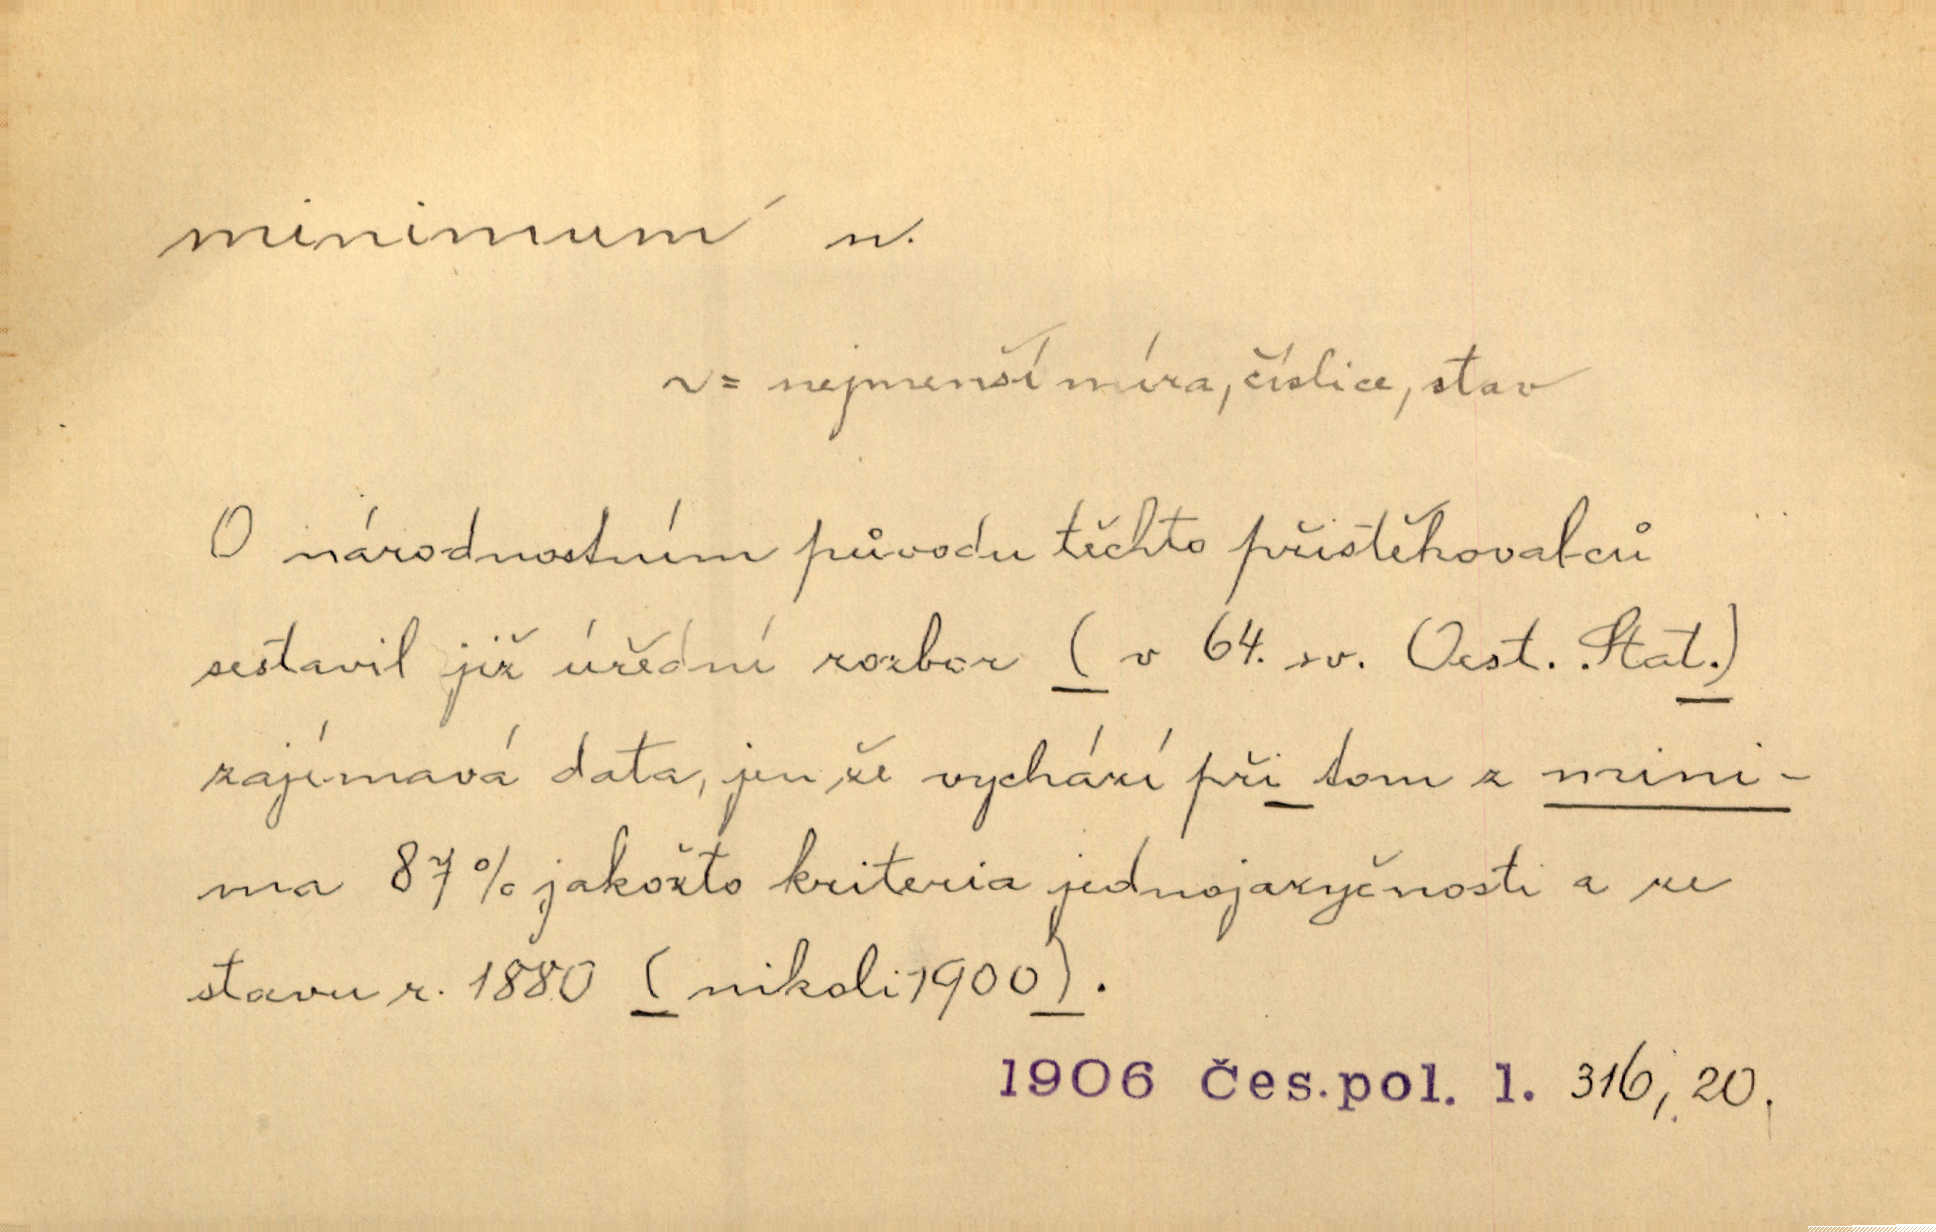 minimum n.
~ = nejmenší míra, číslice, stav
O národnostním původu těchto přistěhovalců
sestavil již úřední rozbor ( v 64. sv. Oest. Stat.)
zajímavá data, jen že vychází při tom z mini-
ma 87% jakožto kriteria jednojazyčnosti a ze
stavu r. 1880 (nikoli 1900).
1906 Čes.pol. l. 316, 20.